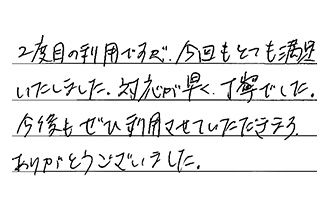 2度目の利用ですが、今回もとても満足
いたしました。対応が早く、丁寧でした。
今後もぜひ利用させていただきます。
ありがとうございました。